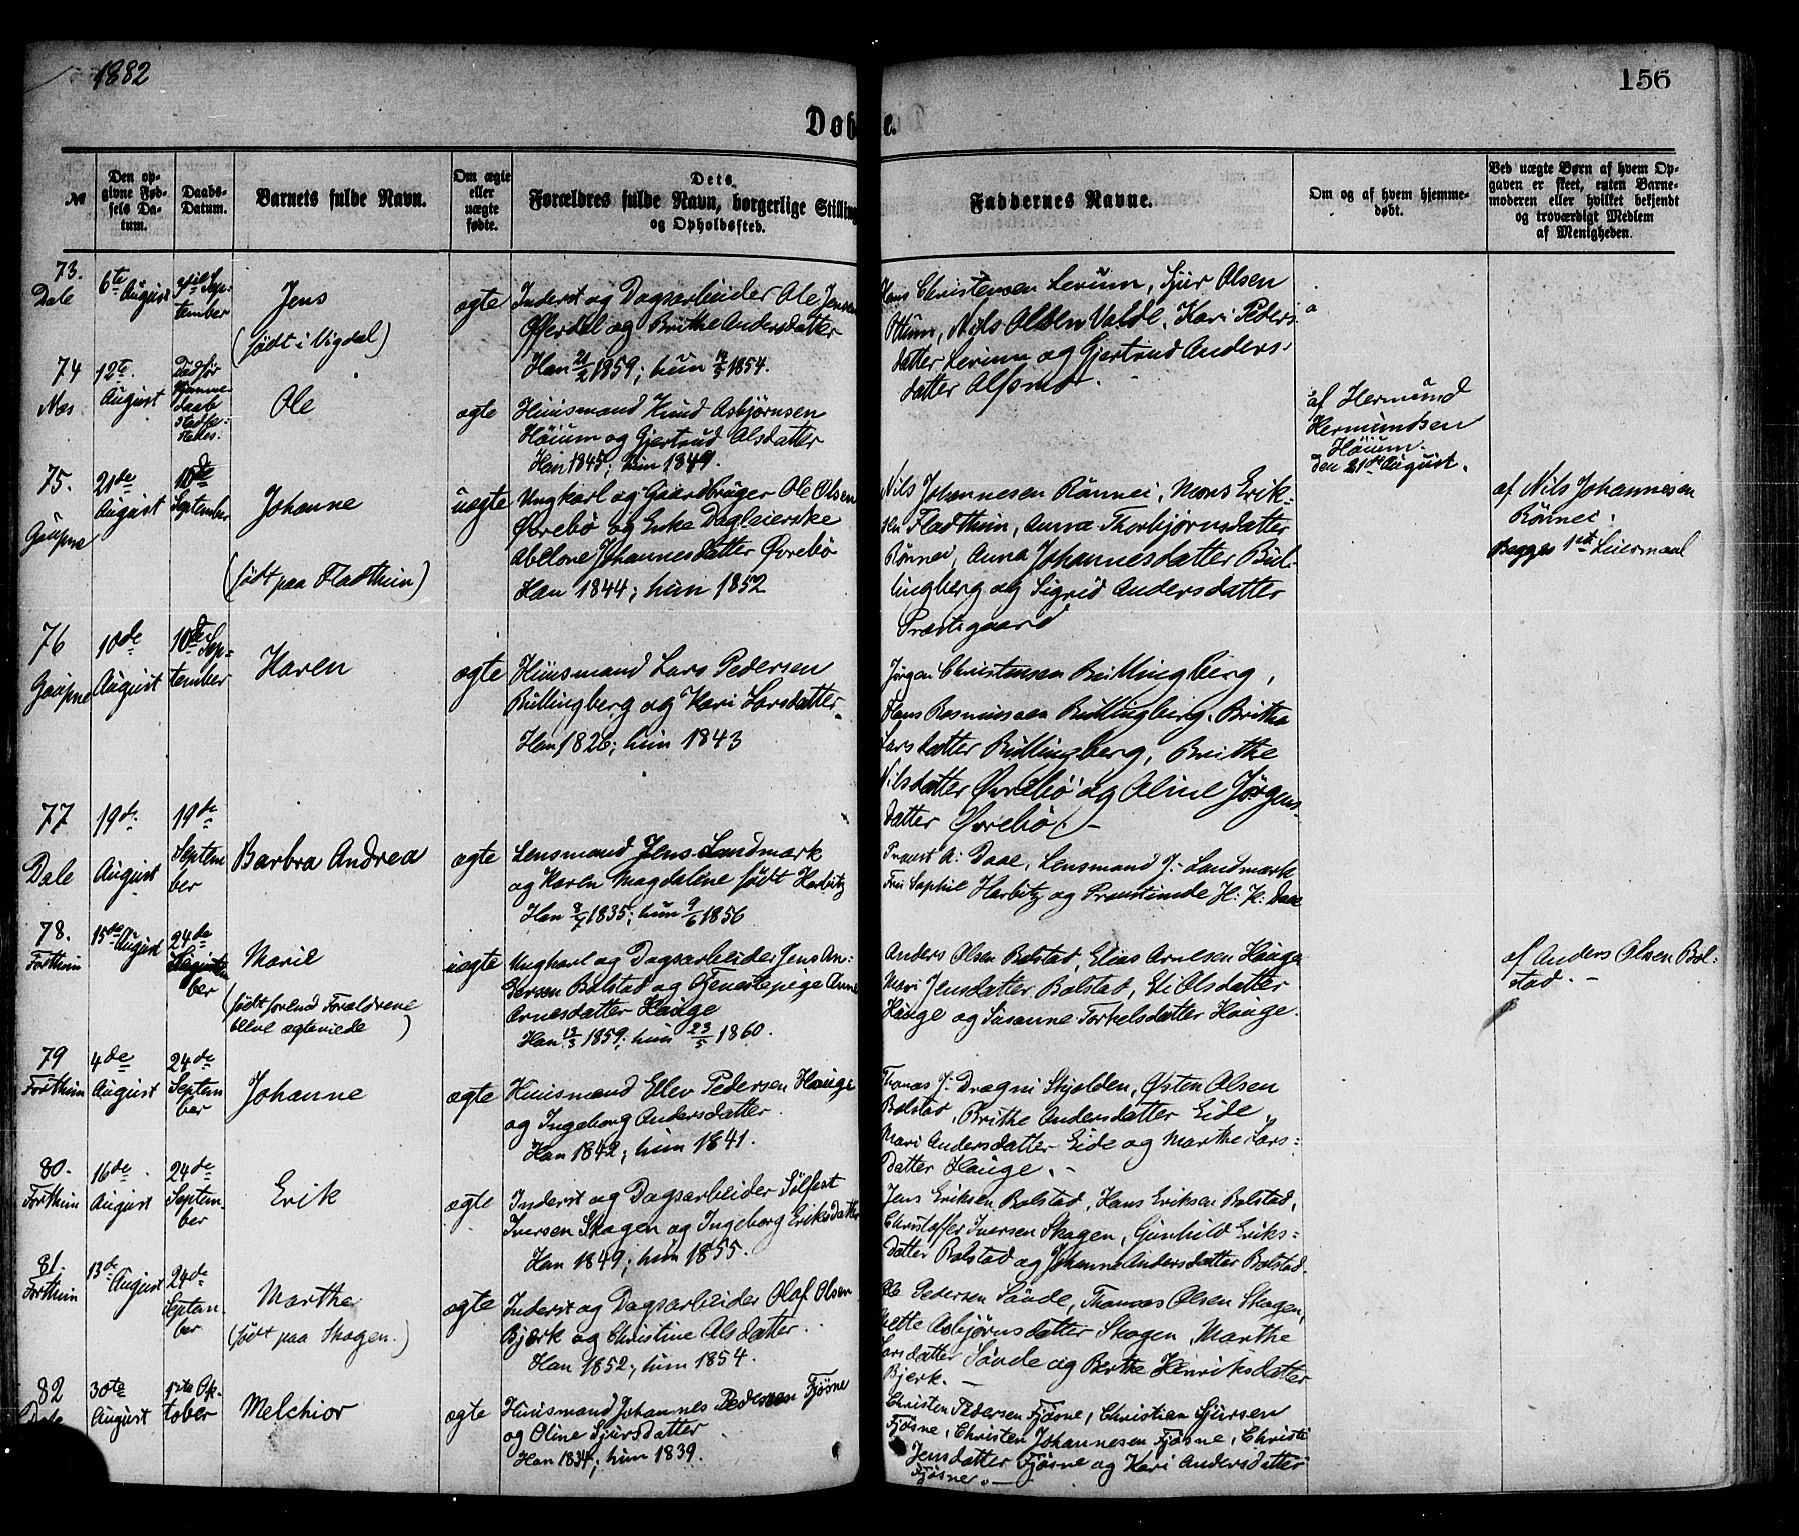 1882
156
Døbte.
№
Den opgivne Fødsels Datum.
Daabs-Datum.
Barnets fulde Navn.
Om ægte eller uægte fødte.
Dets Forældres fulde Navn, borgerlige Stilling og Opholdssted.
Faddernes Navne.
Om og af hvem hjemmedøbt.
Ved uægte Børn af hvem Opgaven er skeet, enten Barnemoderen eller hvilket bekjendt og troværdigt Medlem af Menigheden.
73.
Dale
6te August
September
Jens
(født i Vigdal)
ægte
Inderst og Dagsarbeider Ole Jensen
Offerdal og Brithe Andersdatter
Han 21/2 1859; hun 1854.
Hans Christensen Lerum, Sjur Olsen
Ottum, Nils Olsen Valde, Kari Peders-
datter Lerum og Gjertrud Anders-
datter Alsmo.
74
Næs
12te August
Død før
Hjemme-
daab
stadfæ-
stedes.
Ole
ægte
Huusmand Knud Asbjørnsen
Høium og Gjertrud Olsdatter
Han 1845; hun 1849.
af Hermund
Hermundsen
Høium.
den 21de August.
75.
Gaupne
21de August
10de September
Johanne
(født paa Fladthun)
uægte
Ungkarl og Gaardbruger Ole Olsen
Øvrebø og Enke Dagleierske
Abelone Johannesdatter Øvrebø
Han 1844; hun 1852
Nils Johannesen Rønnei, Mons Erik-
sen Fladthun, Anna Thorbjørnsdatter
Rønnei, Anna Johannesdatter Bul-
lingberg og Sigrid Andersdatter
Præstegaard
af Nils Johannesen
Rønnei.
Begges 1ste Leiermaal
76
Gaupne
10de August
10de September
Karen
ægte
Huusmand Lars Pedersen
Bullingberg og Kari Larsdatter.
Han 1826; hun 1843
Jørgen Christensen Bullingberg,
Hans Rasmussen Bullingberg, Brithe
Larsdatter Bullingberg, Brithe
Nilsdatter Øvrebø og Oline Jørgens-
datter Øvrebø. -
77
Dale
19de August
19de September
Barbra Andrea
ægte
Lensmand Jens Landmark
og Karen Magdalene født Harbitz
Han 8/7 1835; hun 9/6 1856
Proust A. Daae, Lensmand J. Landmark
Fru Sophie Harbitz og Proustinde H. K. Daae
78.
Forthun
15de August
24de September
Marie
(født forend Forældrene
bleve ægteviede)
uægte
Ungkarl og Dagsarbeider Jens An-
dersen Bolstad og Tjenestepige Anne
Arnesdatter Hauge
Han 13/3 1859; hun 23/5 1860.
Anders Olsen Bolstad, Elias Arnesen Hauge
Mari Jensdatter Bolstad, Eli Olsdatter
Hauge og Susanne Torkelsdatter Hauge.
af Anders Olsen Bol-
stad. -
79
Forthun
4de August
24de September
Johanne
ægte
Huusmand Ellev Pedersen Hauge
og Ingeborg Andersdatter.
Han 1842; hun 1841.
Thomas J. Drægni Skjolden, Østen Olsen
Bolstad, Brithe Andersdatter Eide,
Mari Andersdatter Eide og Marthe Lars-
datter Hauge. -
80.
Forthun
16de August
24de September
Erik
ægte
Inderst og Dagsarbeider Sølfest
Iversen Skagen og Ingeborg Eriksdatter
Han 1849; hun 1855.
Jens Eriksen Bolstad, Hans Eriksen Bolstad,
Christoffer Iversen Skagen, Gunhild Eriks-
datter Bolstad og Johanne Andersdatter Bolstad.
81.
Forthun
13de August
24de September
Marthe
(født paa Skagen.)
ægte
Inderst og Dagsarbeider Olaf Olsen
Bjerk og Christine Olsdatter.
Han 1852; hun 1854.
Ole Pedersen Søvde, Thomas Olsen Skagen,
Mette Asbjørnsdatter Skagen, Marthe
Larsdatter Søvde og Berthe Henriksdatter
Bjerk. -
82
Dale
30te August
1ste October
Melchior
ægte
Huusmand Johannes Pedersen Fjøsne
og Oline Sjursdatter
Han 1834; hun 1839.
Christen Pedersen Fjøsne, Christian Sjursen
Fjøsne, Christen Johannesen Fjøsne, Christi
Jensdatter Fjøsne og Kari Andersdatter
Fjøsne. -